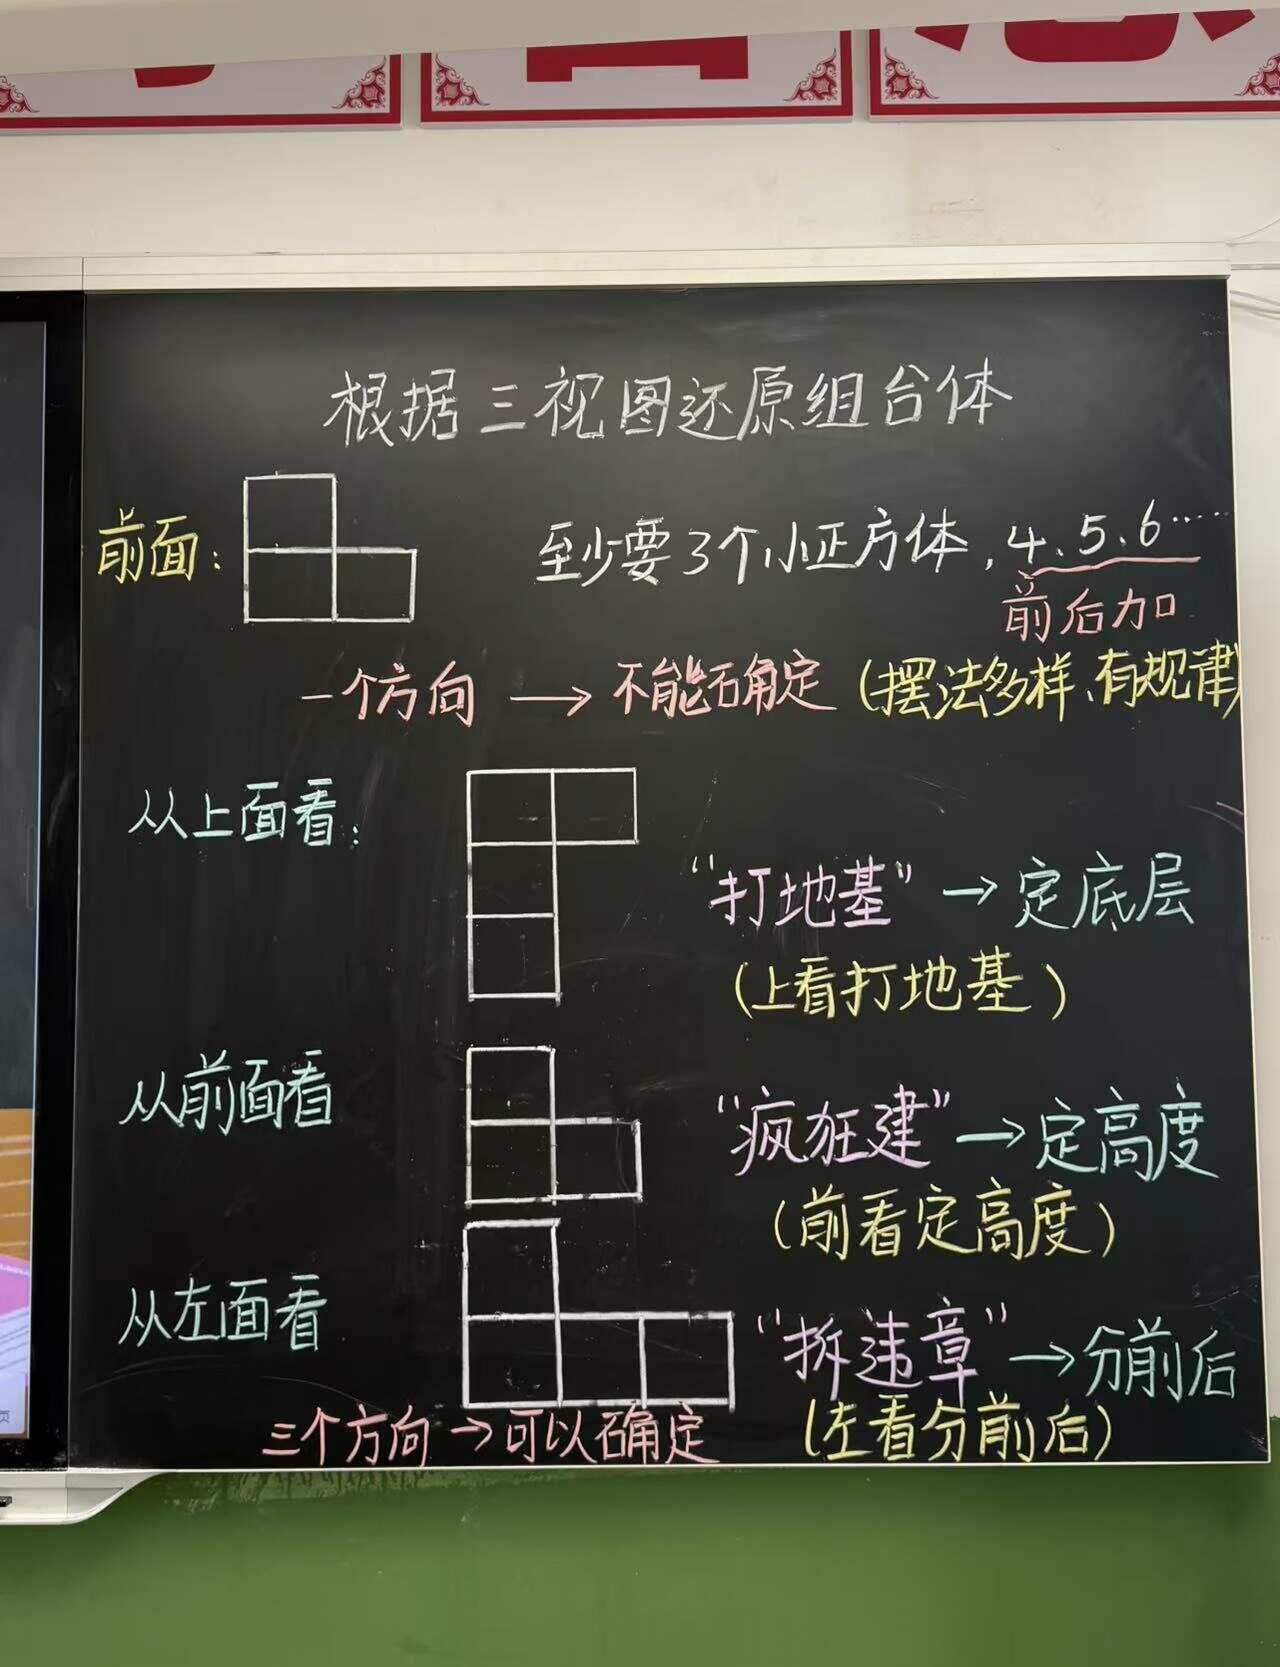 根据三视图还原组合体
前面：
至少要3个小正方体，4、5、6……
前后加
一个方向 → 不能确定（摆法多样、有规律）
从上面看：
"打地基" → 定底层
（上看打地基）
从前面看
"疯狂建" → 定高度
（前看定高度）
从左面看
"拆违章" → 分前后
（左看分前后）
三个方向 → 可以确定